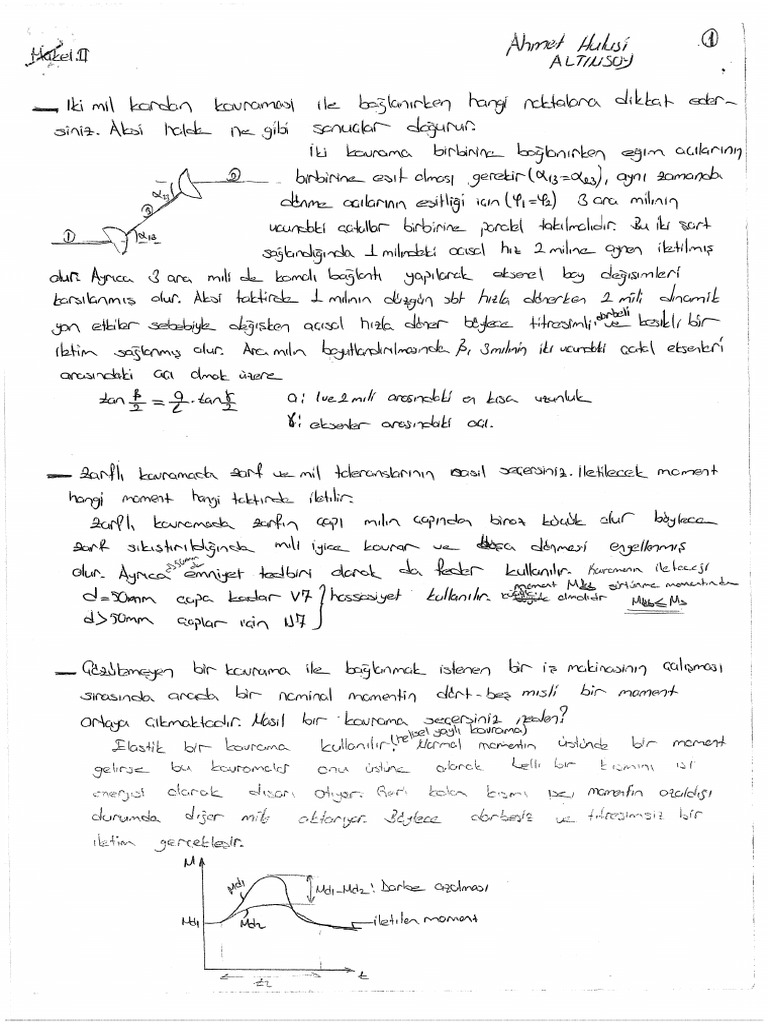 Makel.II
Ahmet Hulusi
ALTINSOY
1
— İki mil kardan kavraması ile bağlanırken hangi noktalara dikkat eder-
siniz. Aksi halde ne gibi sonuclar doğurur.
İki kavrama birbirine bağlanırken eğim açılarının
birbirine esit olması gerekir (α13=α23), aynı zamanda
dönme acılarının esitliği icin (φ1=φ2) 3 ara milinin
ucundaki catallar birbirine paralel takılmalıdır. Bu iki sart
sağlandığında 1 milindeki acısal hız 2 miline aynen iletilmiş
olur. Ayrıca 3 ara mili de kamalı bağlantı yapılarak eksenel boy değişimleri
karsılanmış olur. Aksi taktirde 1 milinin düzgün sbt hızla dönerken 2 mili dinamik
yan etkiler sebebiyle değisken acısal hızla döner böylece titresimli, darbeli ve kesikli bir
iletim sağlanmış olur. Ara milin boyutlandırılmasında β, 3 milinin iki ucundaki catal eksenleri
arasındaki acı olmak üzere
α13
2
3
1
α13
tan β/2 = a/L . tan γ/2
a: 1 ve 2 mili arasındaki en kısa uzunluk
γ: eksenler arasındaki acı.
— Zarflı kavramada zarf ve mil toleranslarının nasıl seçersiniz. İletilecek moment
hangi moment hangi taktirde iletilir.
Zarflı kavramada zarfın capı milin capından biraz küçük olur böylece
zarf sıkıstırıldığında mili iyice kavrar ve dönmesi engellenmiş
olur. Ayrıca d>50mm de emniyet tedbiri olarak da feder kullanılır. Kuramanın ileteceği
d=50mm capa kadar V7 } hassasiyet kullanılır. moment Mkb sürtünme momentinden
d>50mm caplar icin U7
olmalıdır Mkb≤Ms
— Çözülmeyen bir kavrama ile bağlanmak istenen bir iş makinasının çalışması
sırasında arada bir nominal momentin dört-beş misli bir moment
ortaya cıkmaktadır. Nasıl bir kavrama seçersiniz neden?
Elastik bir kavrama kullanılır. (helisel yaylı kavrama) Normal momentin üstünde bir moment
gelirse bu kavramalar onu üstüne alarak belli bir kısmını ısı
enerjisi olarak dısarı atıyor. Geri kalan kısmı ise momentin azaldığı
durumda diğer mile aktarıyor. Böylece darbesiz ve titresimsiz bir
iletim gerceklesir.
M
Md1
Md1-Md2: Darbe azalması
Md1
Md2
iletilen moment
t
t2